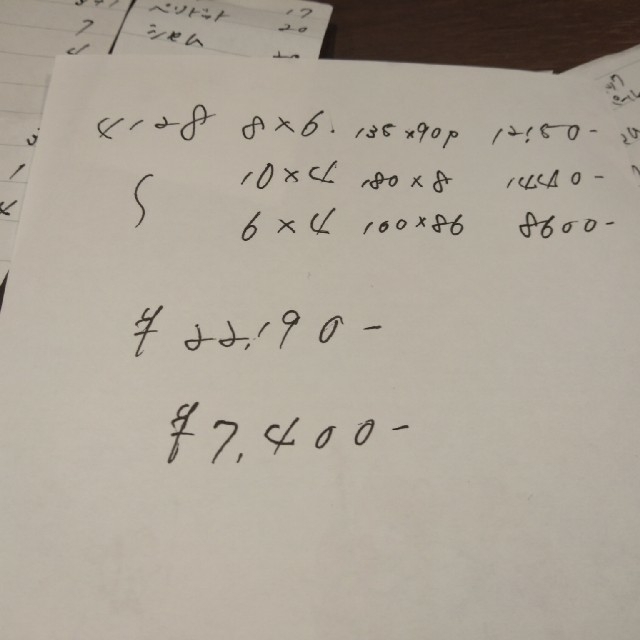 ペリドット 17
7 シェル 20
4/28 8×6. 135×90p 12,150-
10×4 180×8 1440-
6×4 100×86 8600-
¥22,190-
¥7,400-